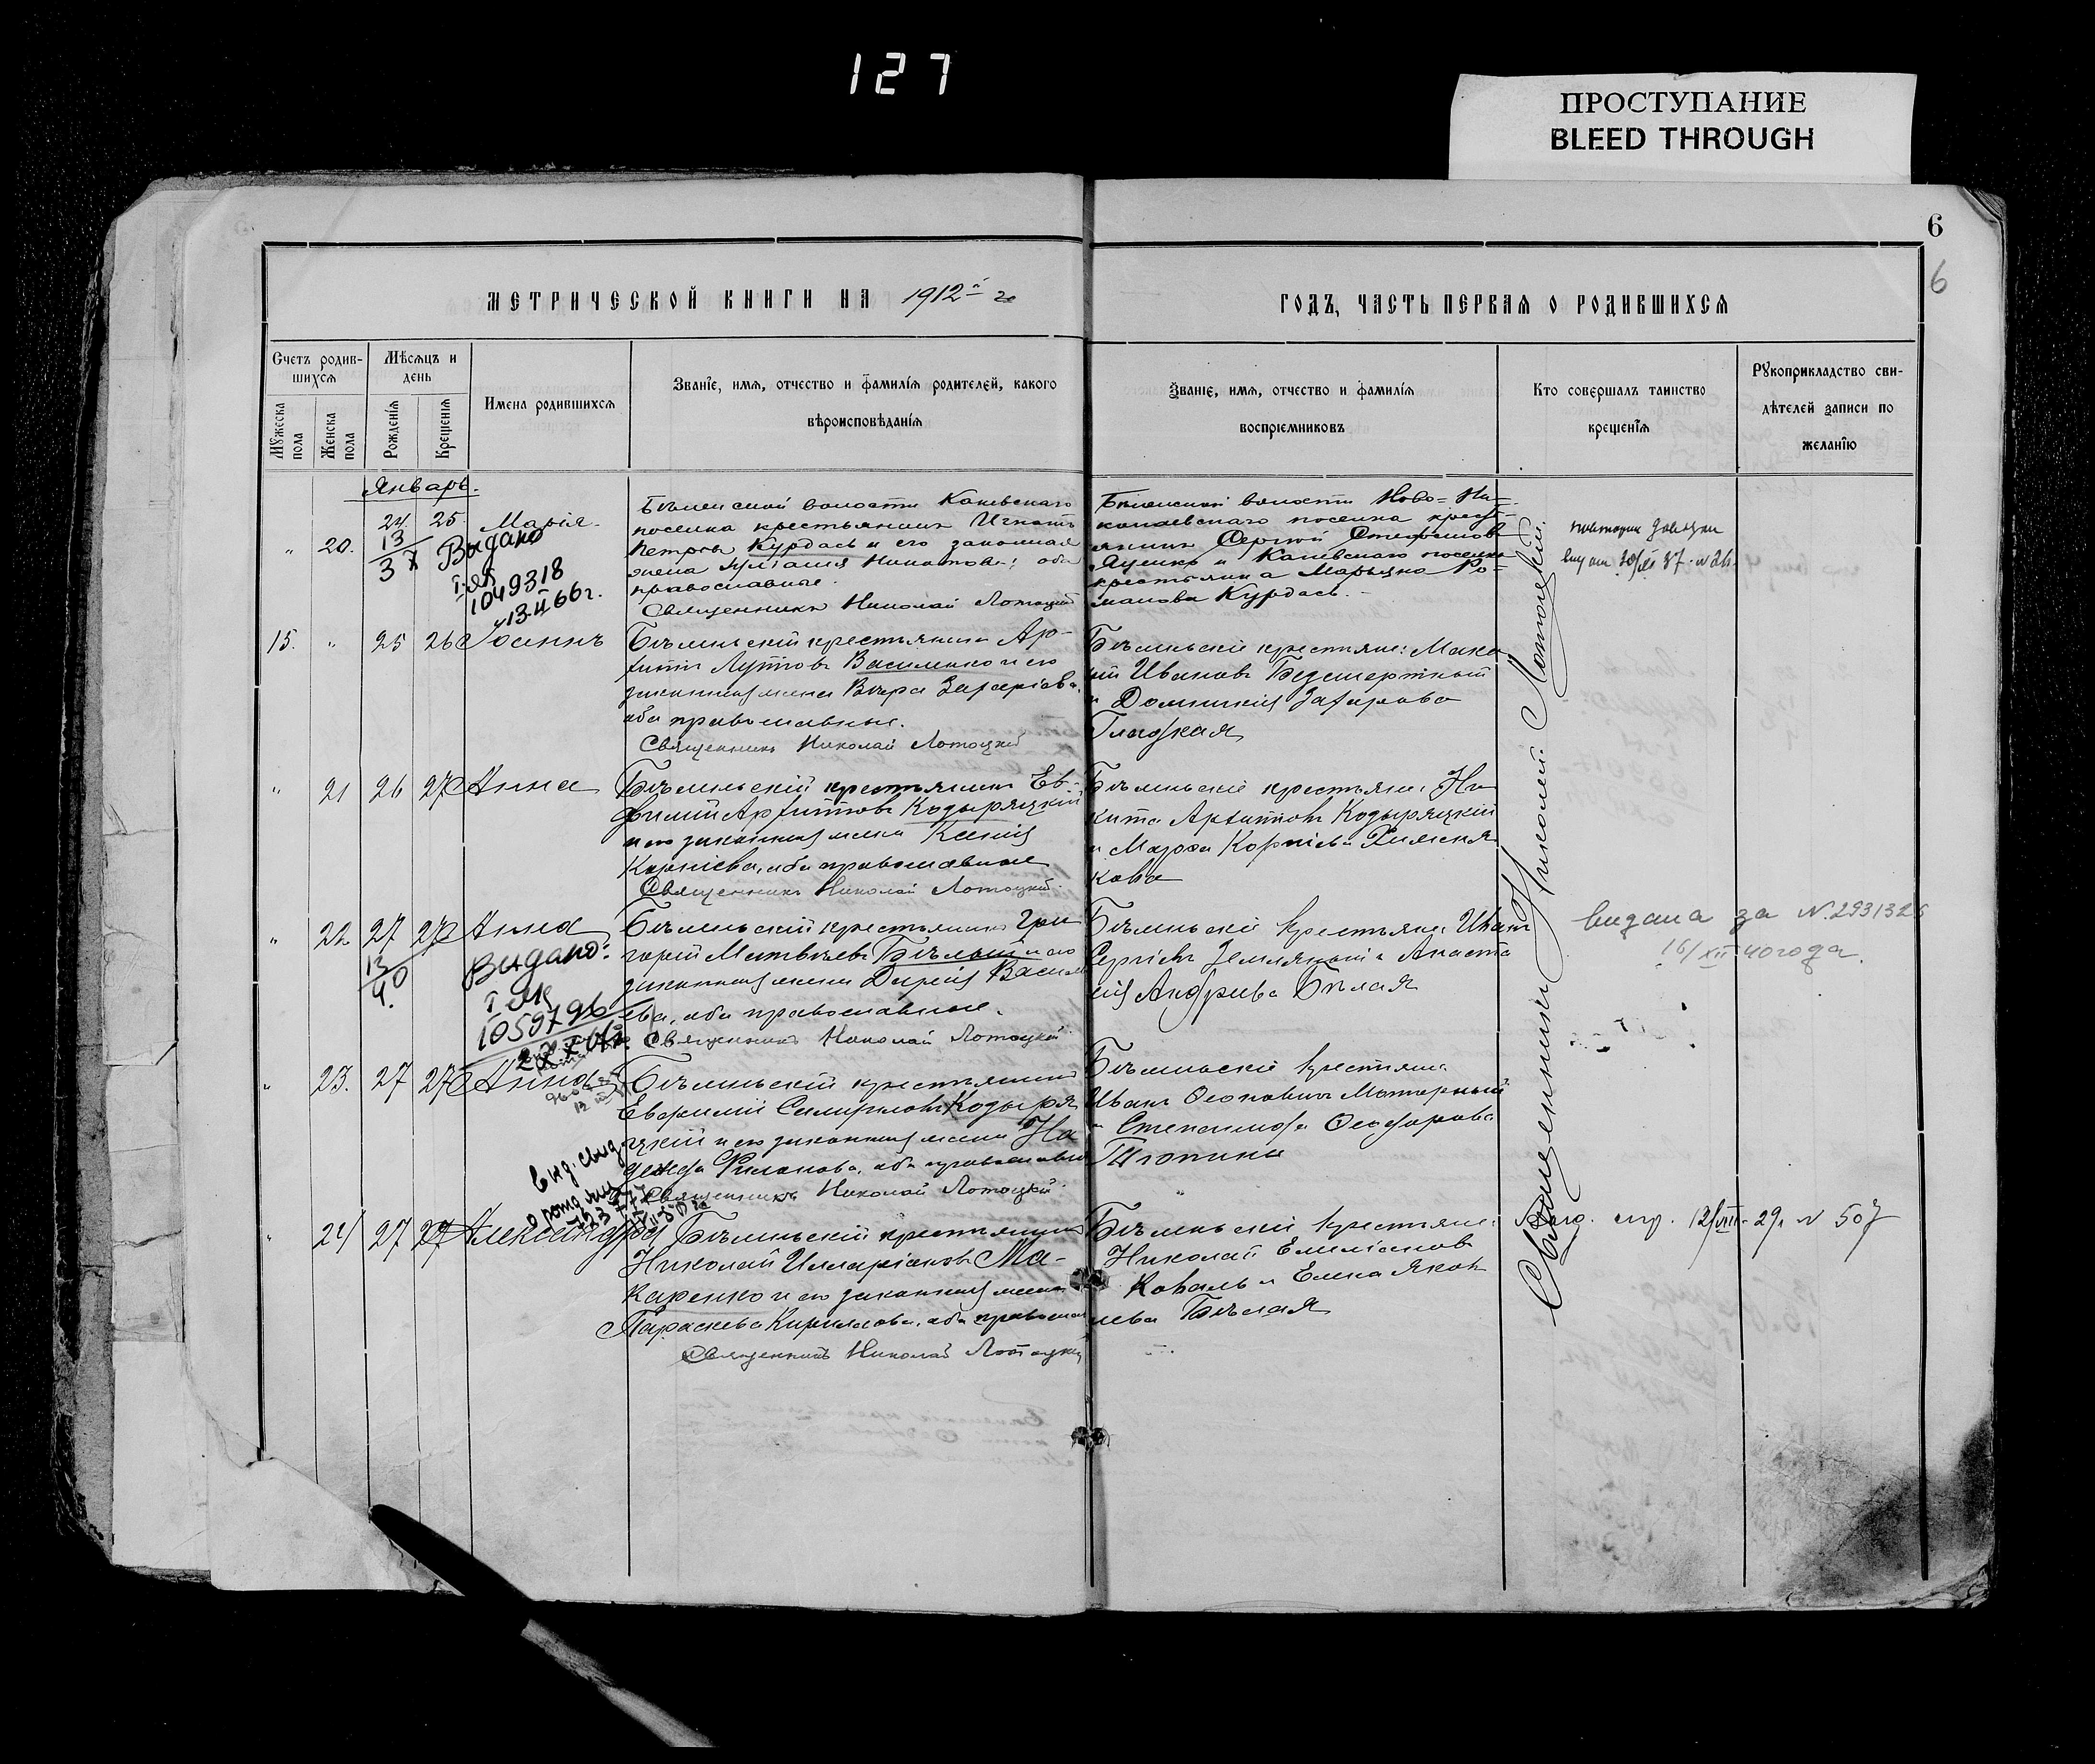 127
ПРОСТУПАНИЕ
BLEED THROUGH
6
6
МЕТРИЧЕСКОЙ КНИГИ НА 1912й г
ГОДЪ, ЧАСТЬ ПЕРВАЯ О РОДИВШИХСЯ
Счетъ родив-
шихся
Мѣсяцъ и
день
Мужеска пола
Женска пола
Рожденія
Крещенія
Имена родившихся
Званіе, имя, отчество и фамилія родителей, какого
вѣроисповѣданія
Званіе, имя, отчество и фамилія
воспріемниковъ
Кто совершалъ таинство
крещенія
Рукоприкладство сви-
дѣтелей записи по
желанію
Январь.
" 20. 24. 25. Марія
13
3 X
Видано
I-ЯК
1049318
13.II 66 г.
волости Каневскаго
поселка крестьянинъ Игнатъ
Петровъ Курдасъ и его законная
жена оба
православные.
Священникъ Николай Лотоцкій
волости Ново=Ни=
колаевскаго поселка кресть=
янинъ Сергій
и Каневскаго поселка
крестьянина Марья Ро=
манова Курдасъ.
15. " 25 26 Іоаннъ
Бѣленьскій крестьянинъ Ар-
Василенко и его
законная жена Вѣра Захаріева,
оба православные.
Священникъ Николай Лотоцкій
Бѣленьскіе крестьяне: Мака
ій Ивановъ Безсмертный
и Домникія Захарова
Гладкая
" 21 26 27 Анна
Бѣленьскій крестьянинъ Ев-
фимій Архиповъ Кодыряцкій
и его законная жена Ксенія
Корніева, оба православные
Священникъ Николай Лотоцкій.
Бѣленьскіе крестьяне: Ни
кита Архиповъ Кодыряцкій
и Марфа Корніева
кова
" 22 27 27 Анна
13
40.
Видано:
I ЯК
1059796
Бѣленьскій крестьянинъ Гри
горій Матвѣевъ Бѣлый и его
законная жена Дарія Васил
ева, оба православные.
Священникъ Николай Лотоцкій.
Бѣленьскіе крестьяне Иванъ
Сергіевъ Землякъ и Анаста
сія Андреева Бѣлая
видана за N.293132
16/XII 40 года.
" 23. 27 27 Анна
Бѣленьскій крестьянинъ
Евфимій Кодыря
цкій и его законная жена На
дежда Филонова, оба православные
Священникъ Николай Лотоцкій.
Бѣленьскіе крестьяне
Иванъ Моторный
и Степанида Ѳеодорова
вид. свид.
о рожд.
" 24 27 27 Александра
Бѣленьскій крестьянинъ
Николай Илларіоновъ Ма-
каренко и его законная жена
Параскева Кириллова, оба правосла
Священникъ Николай Лотоцкій
Бѣленьскіе крестьяне:
Николай Емиліановъ
Коваль и Елена Яков
лева Бѣлая
12/VIII-29 г N 507
Священникъ Николай Лотоцкій.